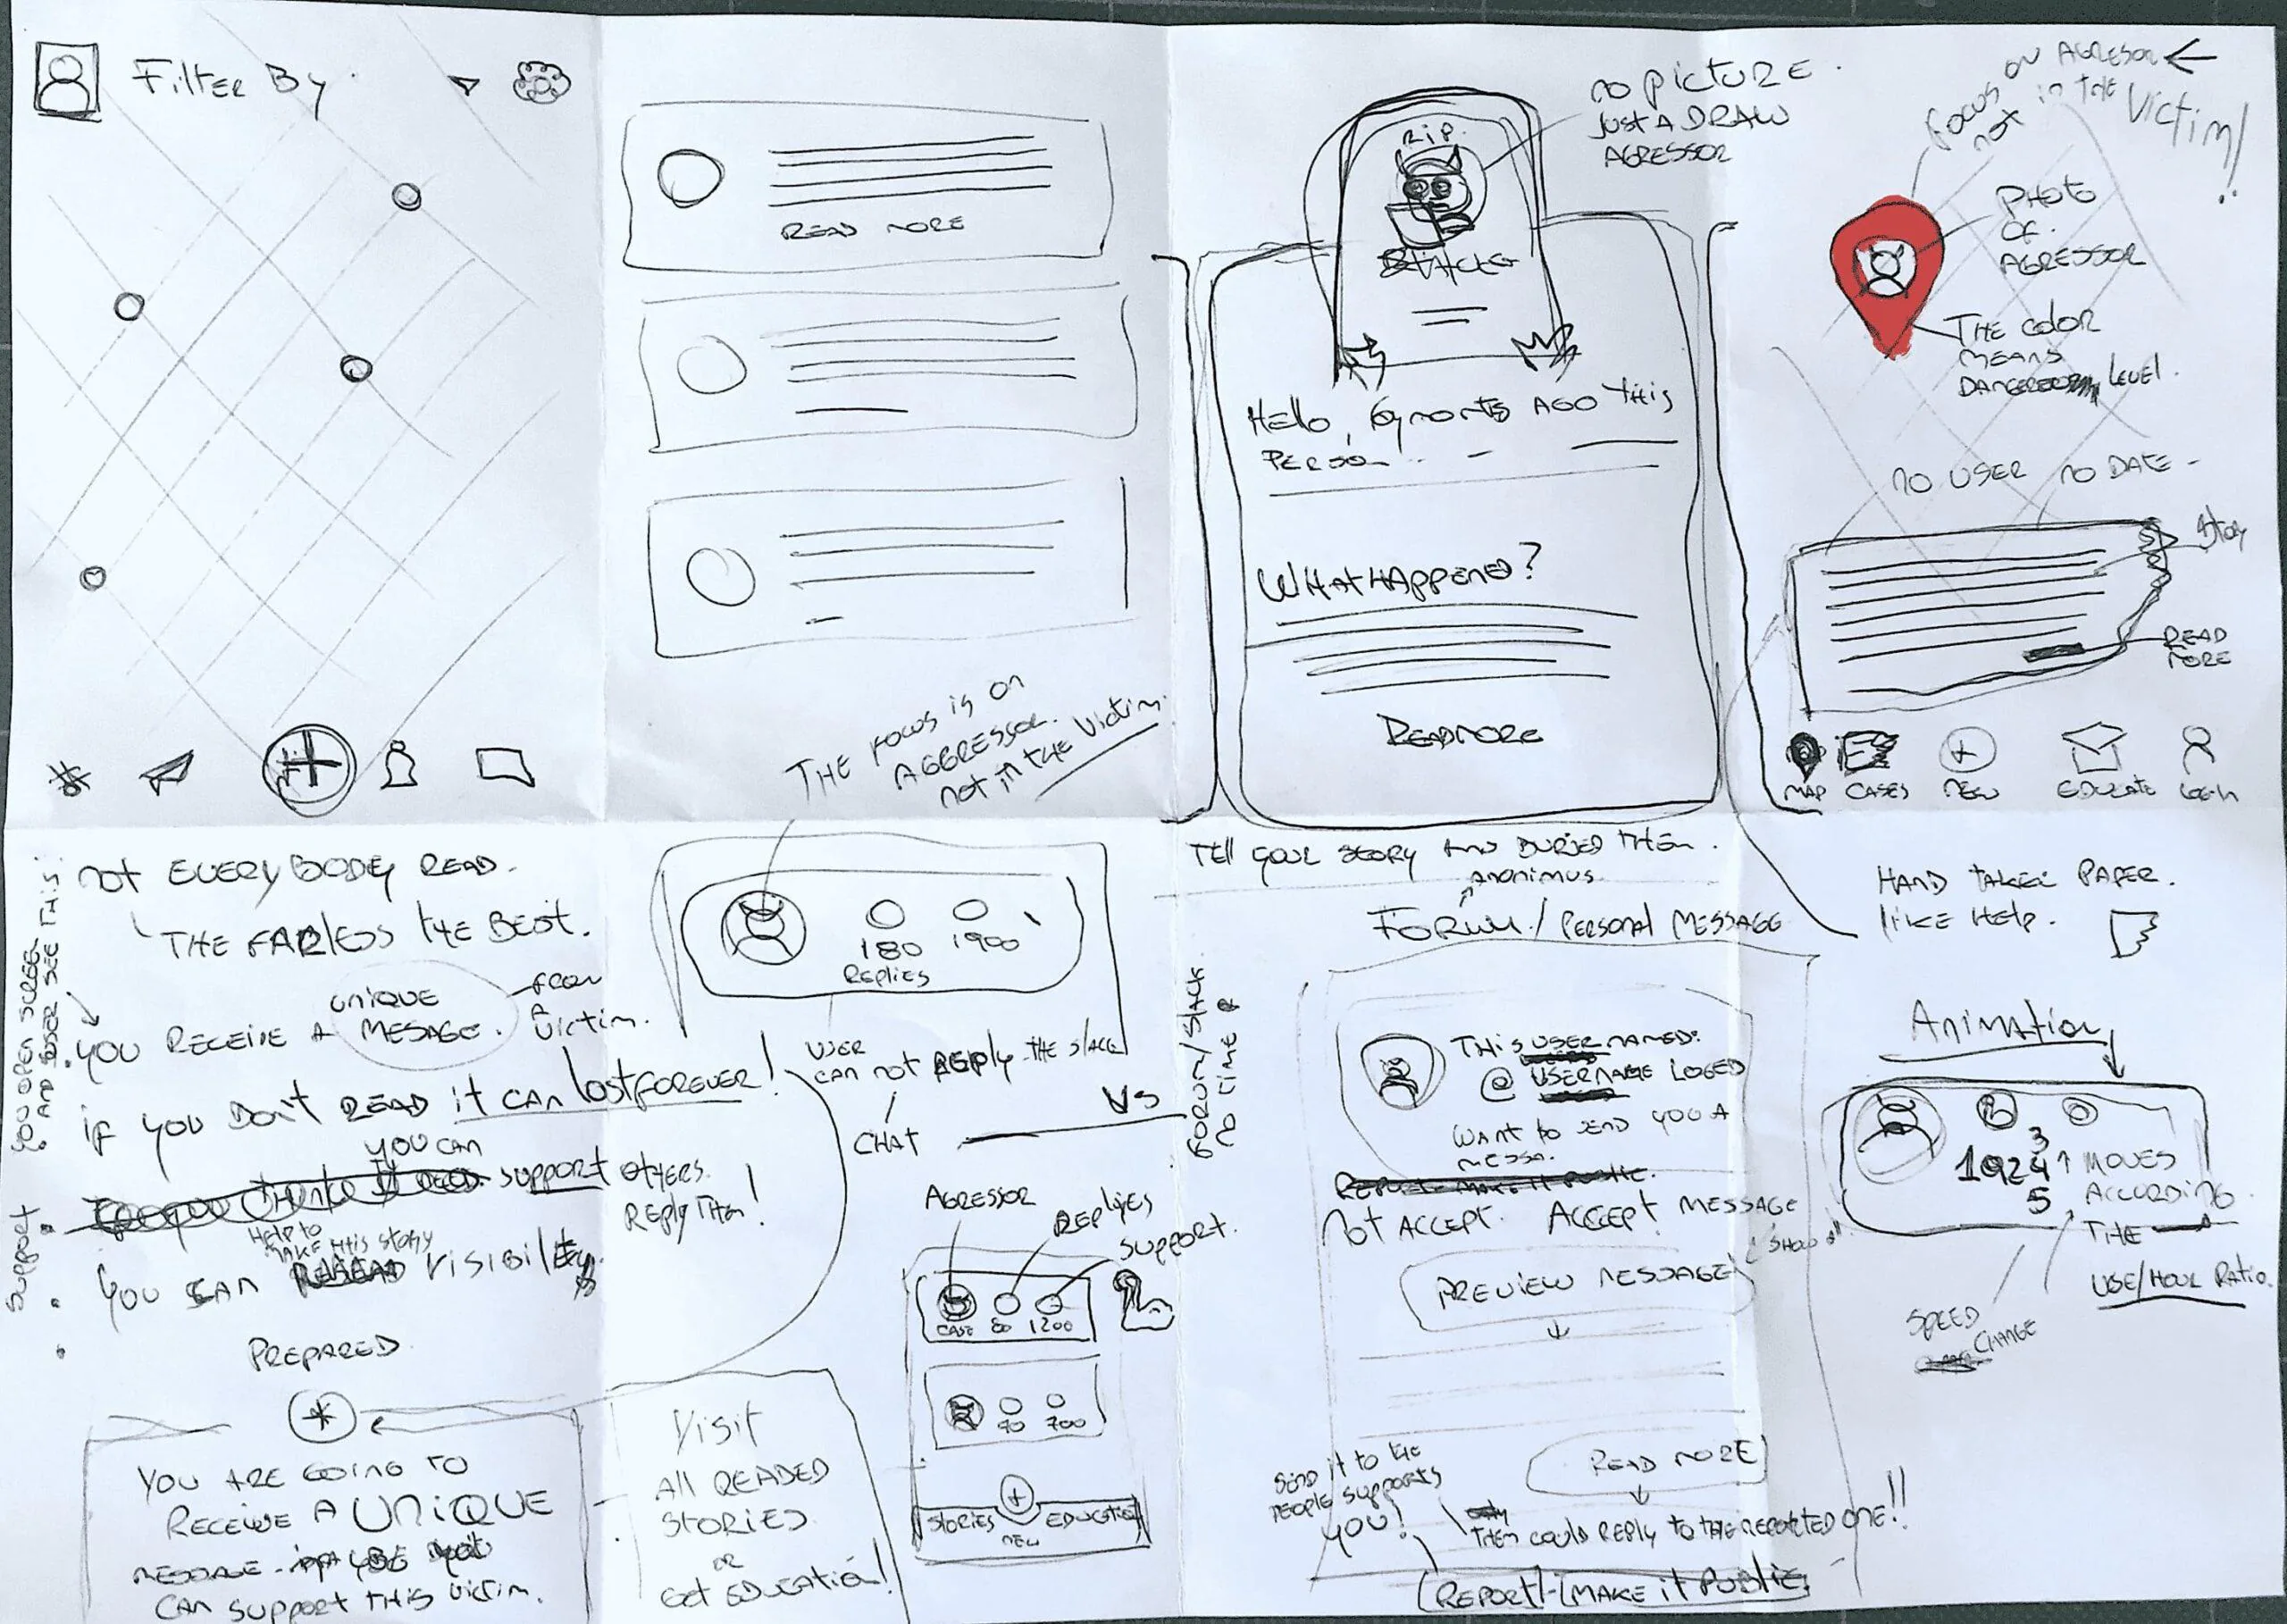 Filter By.
READ MORE
THE FOCUS IS ON
AGGRESSOR.
not in the Victim.
NO PICTURE.
JUST A DRAW
AGRESSOR
R.I.P.
Hello, 6 monts AGO this
PERSON
WHAT HAPPENED?
READ MORE
FOCUS ON AGRESOR
not in THE Victim!!
PHOTO
OF.
AGRESSOR
THE COLOR
MEANS
LEVEL.
NO USER NO DATE -
Stoy
READ
MORE
MAP CASES NEW EDUCATE LOGIN
not EVERYBODY READ.
THE FARLESS THE BEST.
YOU OPEN SCREEN
AND USER SEE THIS:
UNIQUE
FROM
A
victim.
YOU RECEIVE A MESAGE.
IF YOU DON'T READ it CAN lost FOREVER!
YOU CAN
SUPPORT OTHERS.
REPLY THEM!
Help to
MAKE tHis stoRy
YOU CAN VISIBILITY
SUPPORT
PREPARED
YOU ARE GOING TO
RECEIVE A UNIQUE
MESSAGE.
CAN SUPPORT THIS VICTIM.
180
1900
REPLIES
USER
CAN NOT REPLY THE
CHAT
VS
AGRESSOR
REPLYES
SUPPORT.
CASE 80 1200
70 700
STORIES NEW EDUCATION
Visit
All READED
STORIES
OR
Get EDUCATION!
TEll YOUR STORY AND BURIED THEM.
ANONIMUS
FORUM / PERSONAL MESSAGE
THIS USER NAMED:
@ USERNAME LOGED
WANT to SEND YOU A
MESSA.
NOT ACCEPT. ACCEPT MESSAGE
PREVIEW MESSAGE
READ MORE
SEND it to the
PEOPLE SUPPORTS
YOU!
THEM COULD REPLY TO THE REPORTED ONE!!
REPORT - MAKE it PUBLIC
HAND TAKEE PAPER.
like Help.
Animation
3
1924
5
MOVES
ACCORDING
THE
USE/HOUR RATIO.
SPEED
CHANGE